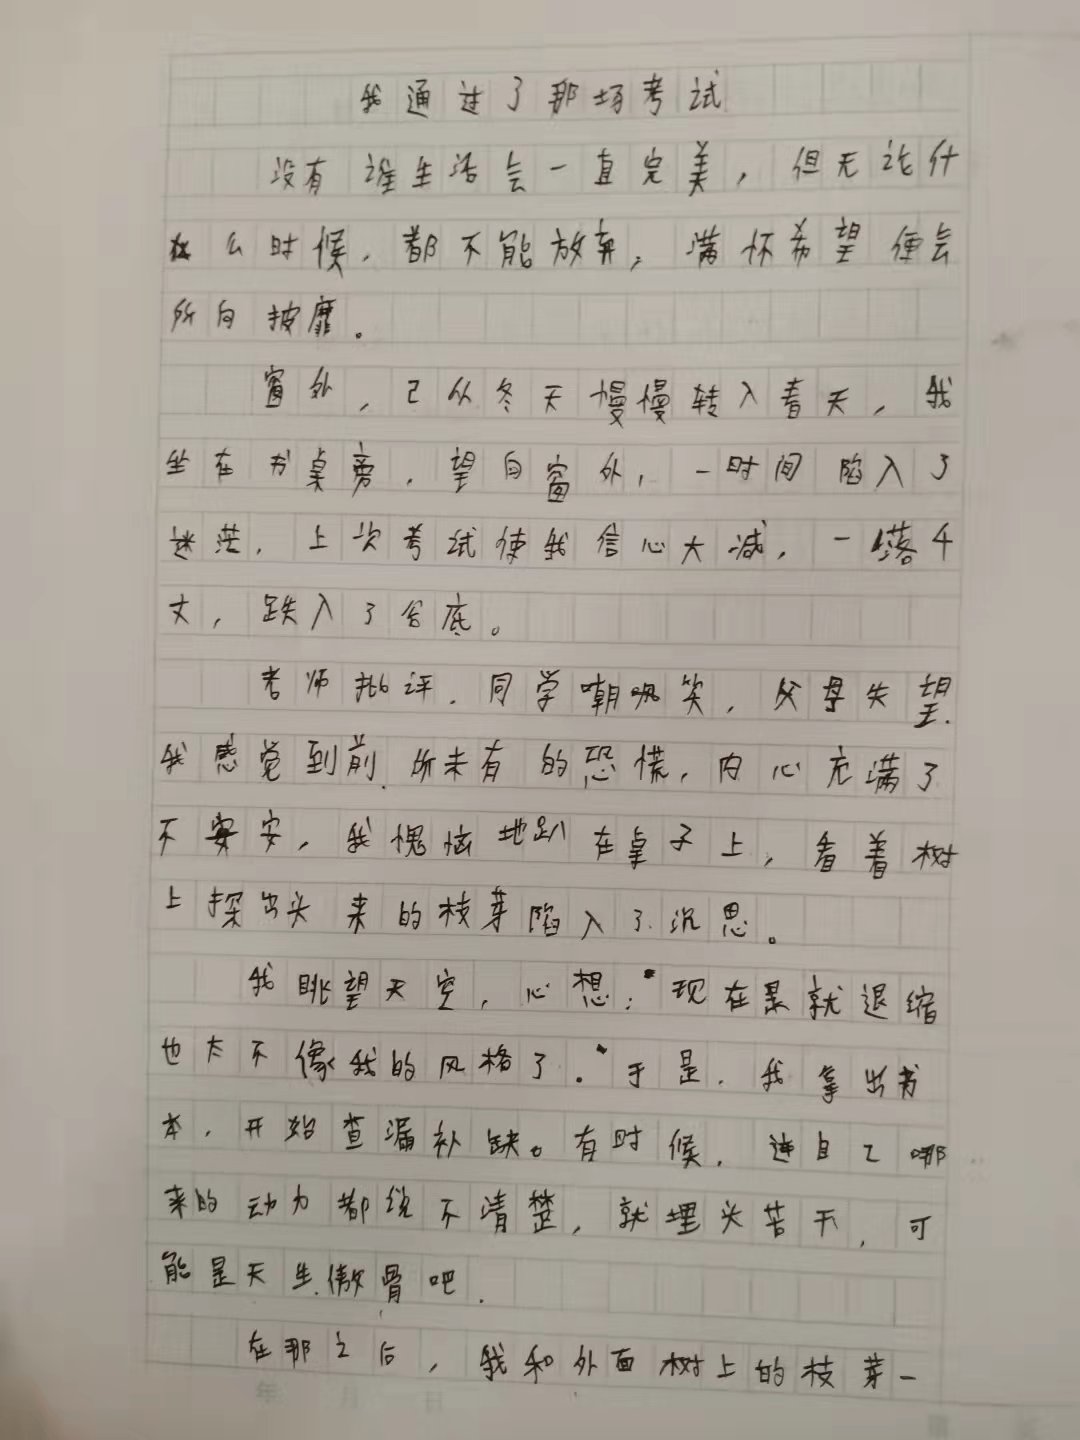 我通过了那场考试
没有谁生活会一直完美，但无论什
么时候，都不能放弃，满怀希望便会
所向披靡。
窗外，已从冬天慢慢转入春天，我
坐在书桌旁，望向窗外，一时间陷入了
迷茫，上次考试使我信心大减，一落千
丈，跌入了谷底。
老师批评，同学嘲讽笑，父母失望，
我感觉到前所未有的恐慌，内心充满了
不安，我愧恼地趴在桌子上，看着树
上探出头来的枝芽陷入了沉思。
我眺望天空，心想："现在是就退缩
也太不像我的风格了。"于是，我拿出书
本，开始查漏补缺。有时候，连自己哪
来的动力都说不清楚，就埋头苦干，可
能是天生傲骨吧.
在那之后，我和外面树上的枝芽一
年 月 日